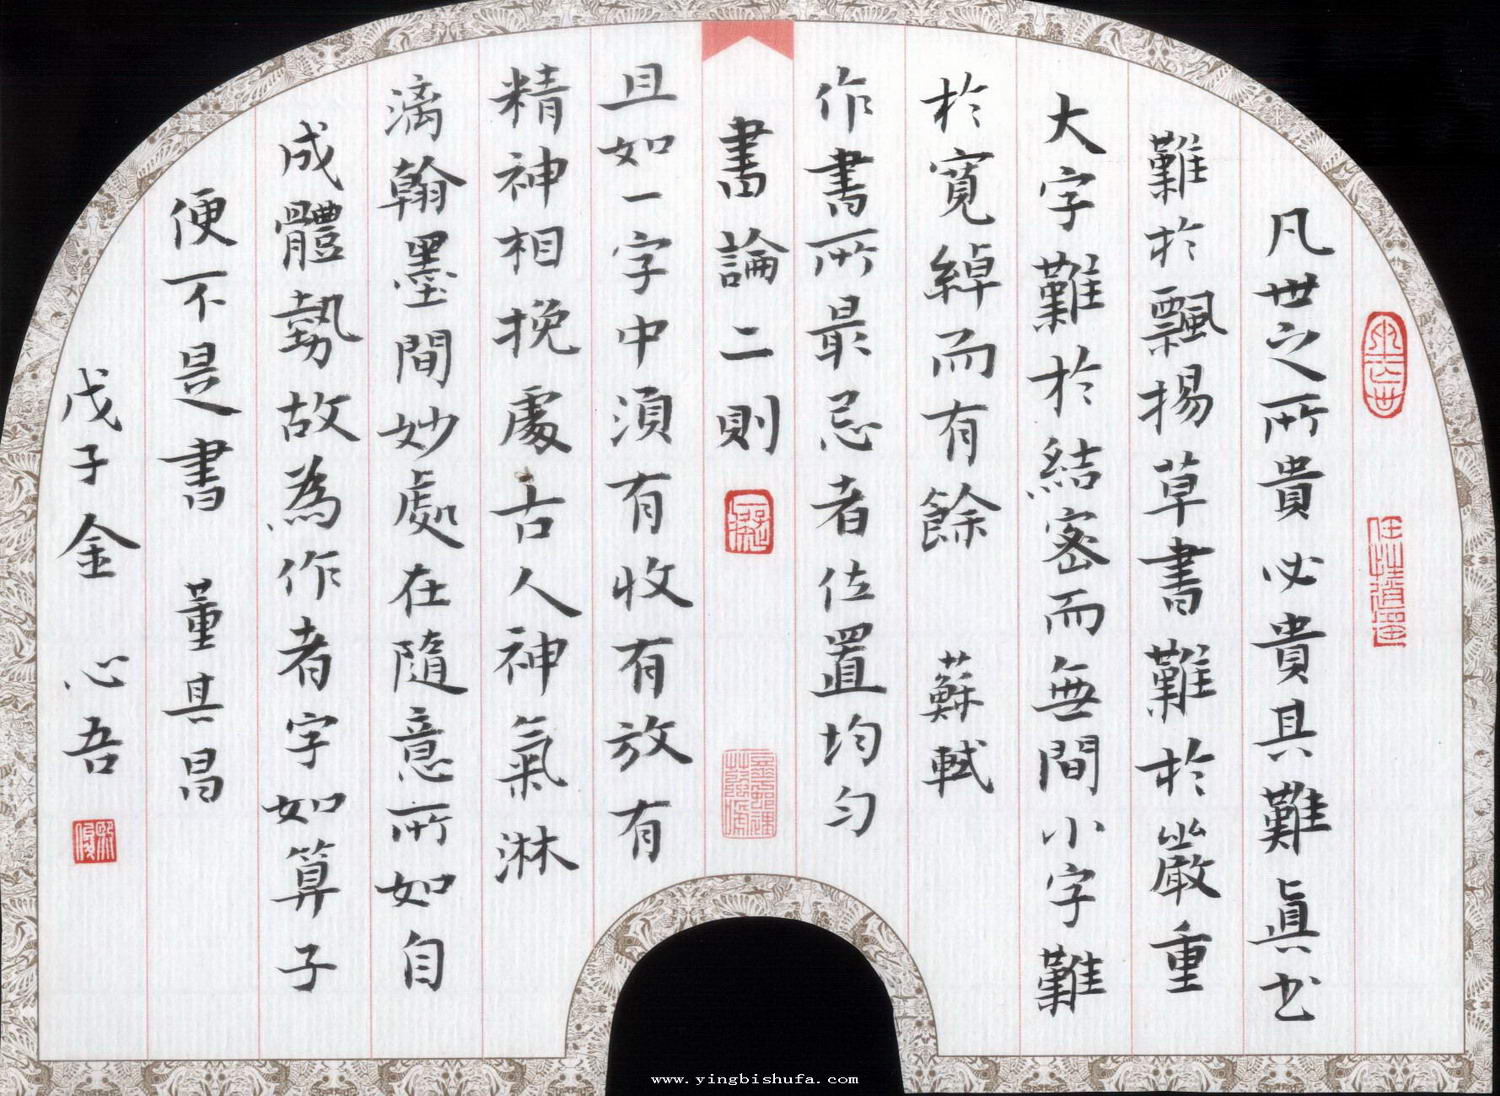 凡世之所貴必貴其難真书
難於飄揚草書難於嚴重
大字難於結密而無間小字難
於寬綽而有餘 蘇軾
作書所最忌者位置均匀
書論二則
且如一字中須有收有放有
精神相挽處古人神氣淋
漓翰墨間妙處在隨意所如自
成體勢故為作者字如算子
便不是書 董其昌
戊子金 心吾
www.yingbishufa.com